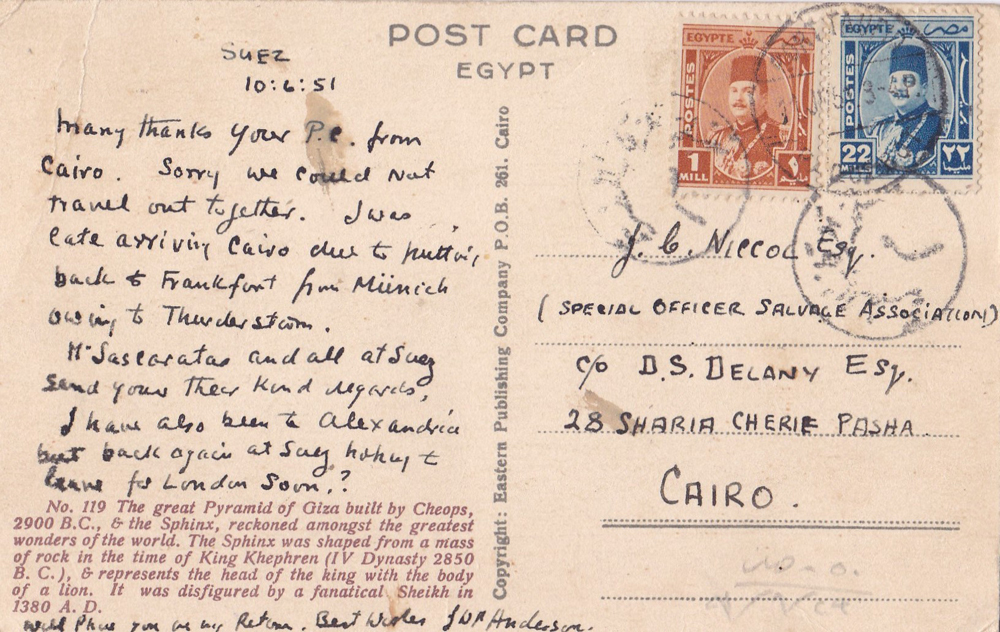 POST CARD
EGYPT
SUEZ
10:6:51
Many thanks your P.C. from
Cairo. Sorry we could not
travel out together. I was
late arriving Cairo due to putting
back to Frankfort from Münich
owing to Thunderstorm.
Mr Sascaratas and all at Suez
send your their kind regards,
I have also been to Alexandria
but back again at Suez hoping to
leave for London soon.?
No. 119 The great Pyramid of Giza built by Cheops,
2900 B.C., & the Sphinx, reckoned amongst the greatest
wonders of the world. The Sphinx was shaped from a mass
of rock in the time of King Khephren (IV Dynasty 2850
B. C.), & represents the head of the king with the body
of a lion. It was disfigured by a fanatical Sheikh in
1380 A. D.
will phone you on my Return. Best Wishes J W P Anderson.
Copyright: Eastern Publishing Company P.O.B. 261. Cairo
EGYPTE
POSTES
1
MILL
١
مليم
EGYPTE مصر
POSTES
22
MILLS
٢٢
J. C. NICCOL Esq.
(SPECIAL OFFICER SALVAGE ASSOCIATION)
c/o D.S. DELANY Esq.
28 SHARIA CHERIF PASHA
CAIRO.